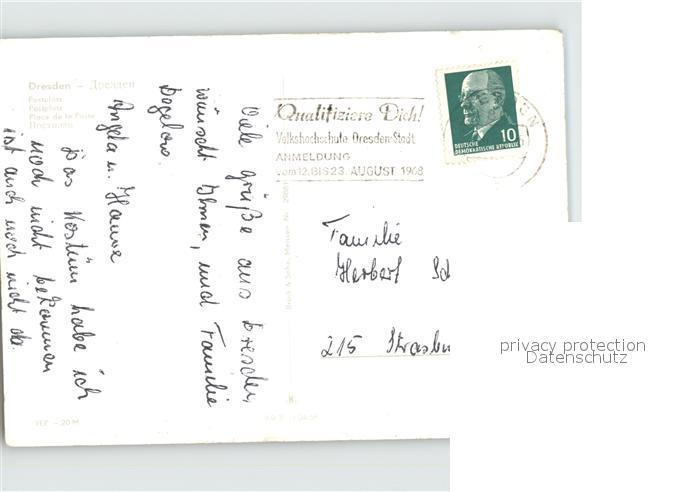 Dresden – Дрезден
Postplatz
Postplatz
Place de la Poste
Viele Grüße aus Dresden
wünscht Ihnen, und Familie
Angela u. Hanne
Das Kostüm habe ich
noch nicht bekommen
ist auch noch nicht da.
VEF – 20 M
Brück & Sohn, Meissen Nr.
Qualifiziere Dich!
Volkshochschule Dresden-Stadt
ANMELDUNG
vom 12. BIS 23. AUGUST 1968
10
DEUTSCHE
DEMOKRATISCHE REPUBLIK
Familie
Herbert Sch
215 Strasbu
privacy protection
Datenschutz